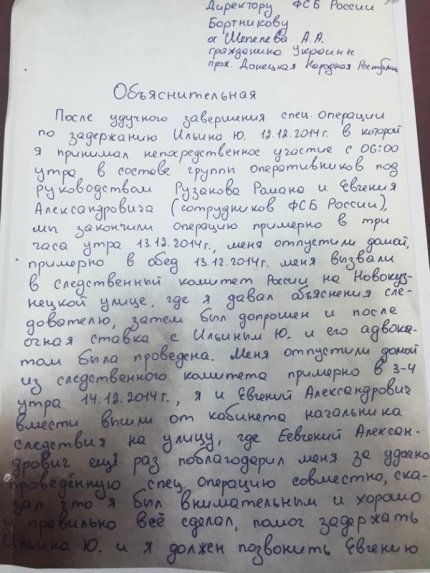 Директору ФСБ России
Бортникову
от Шепелева А.А.
гражданина Украины
прож. Донецкая Народная Республика
Объяснительная
После удучного завершения спец. операции
по задержанию Ильина Ю. 12.12.2014г. в которой
я принимал непосредственное участие с 06:00
утра, в составе группы оперативников под
руководством Рузанова Романа и Евгения
Александровича (сотрудников ФСБ России),
мы закончили операцию примерно в три
часа утра 13.12.2014г., меня отпустили домой,
примерно в обед 13.12.2014г. меня вызвали
в следственный комитет России на Новокуз-
нецкой улице, где я давал объяснения сле-
дователю, затем был допрошен и после
очная ставка с Ильиным Ю. и его адвока-
том была проведена. Меня отпустили домой
из следственного комитета примерно в 3-4
утра 14.12.2014г., я и Евгений Александрович
вмести вышли от кабинета начальника
следствия на улицу, где Еевгений Алексан-
дрович ещё раз поблагодарил меня за удачно
проведённую спец. операцию совместно, ска-
зал что я был внимательным и хорошо
и правильно всё сделал, помог задержать
Ильина Ю. и я должен позвонить Евгению